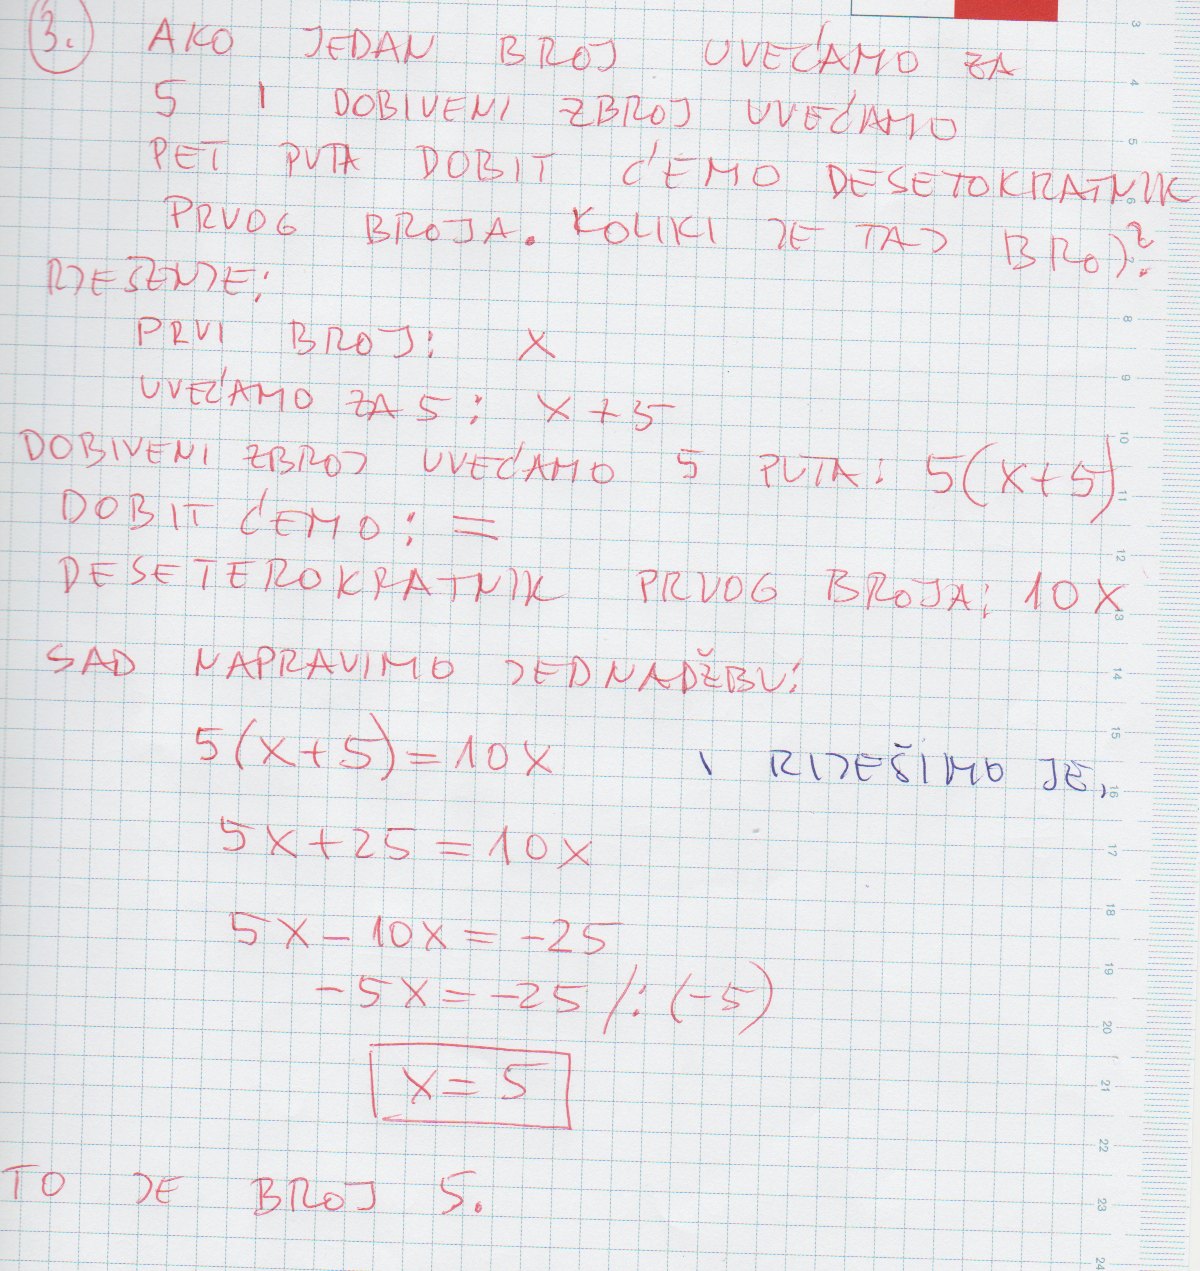 3. AKO JEDAN BROJ UVEĆAMO ZA
5 I DOBIVENI ZBROJ UVEĆAMO
PET PUTA DOBIT ĆEMO DESETOKRATNIK
PRVOG BROJA. KOLIKI JE TAJ BROJ?
RJEŠENJE:
PRVI BROJ: X
UVEĆAMO ZA 5: X+5
DOBIVENI ZBROJ UVEĆAMO 5 PUTA: 5(X+5)
DOBIT ĆEMO: =
DESETEROKRATNIK PRVOG BROJA: 10X
SAD NAPRAVIMO JEDNADŽBU:
5(X+5)=10X I RIJEŠIMO JE.
5X+25=10X
5X-10X=-25
-5X=-25 /:(-5)
X=5
TO JE BROJ 5.
3
4
5
6
8
9
10
11
12
13
14
15
16
17
18
19
20
21
22
23
24